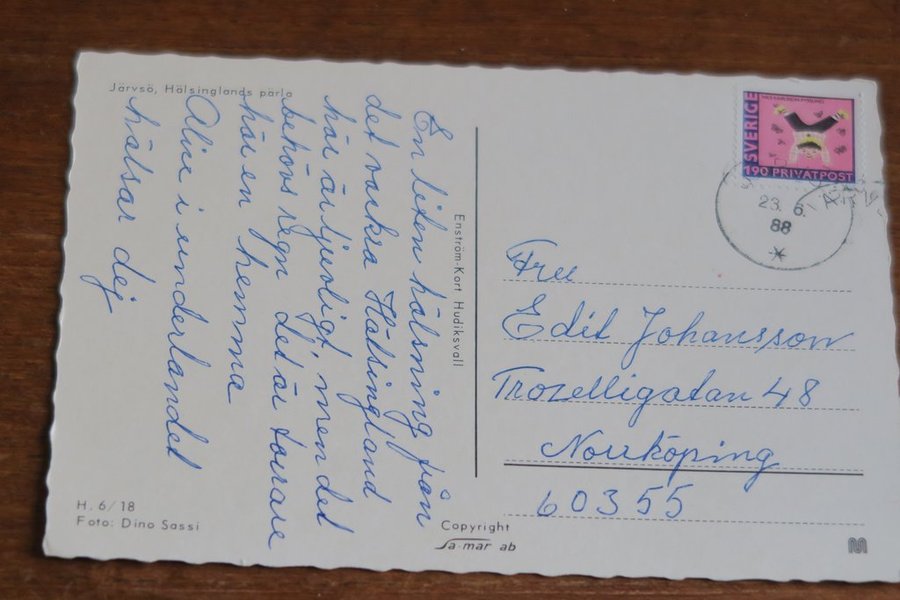 Järvsö, Hälsinglands pärla
En liten hälsning från
det vackra Hälsingland
här är ljuvligt, men det
behövs regn det är torrare
här en hemma
Alice i underlandet
hälsar dej
Enström-Kort Hudiksvall
SVERIGE
190 PRIVATPOST
23. 6.
88
Fru
Edit Johansson
Trozelligatan 48
Norrköping
60355
H. 6/18
Foto: Dino Sassi
Copyright
Sa-mar ab
M